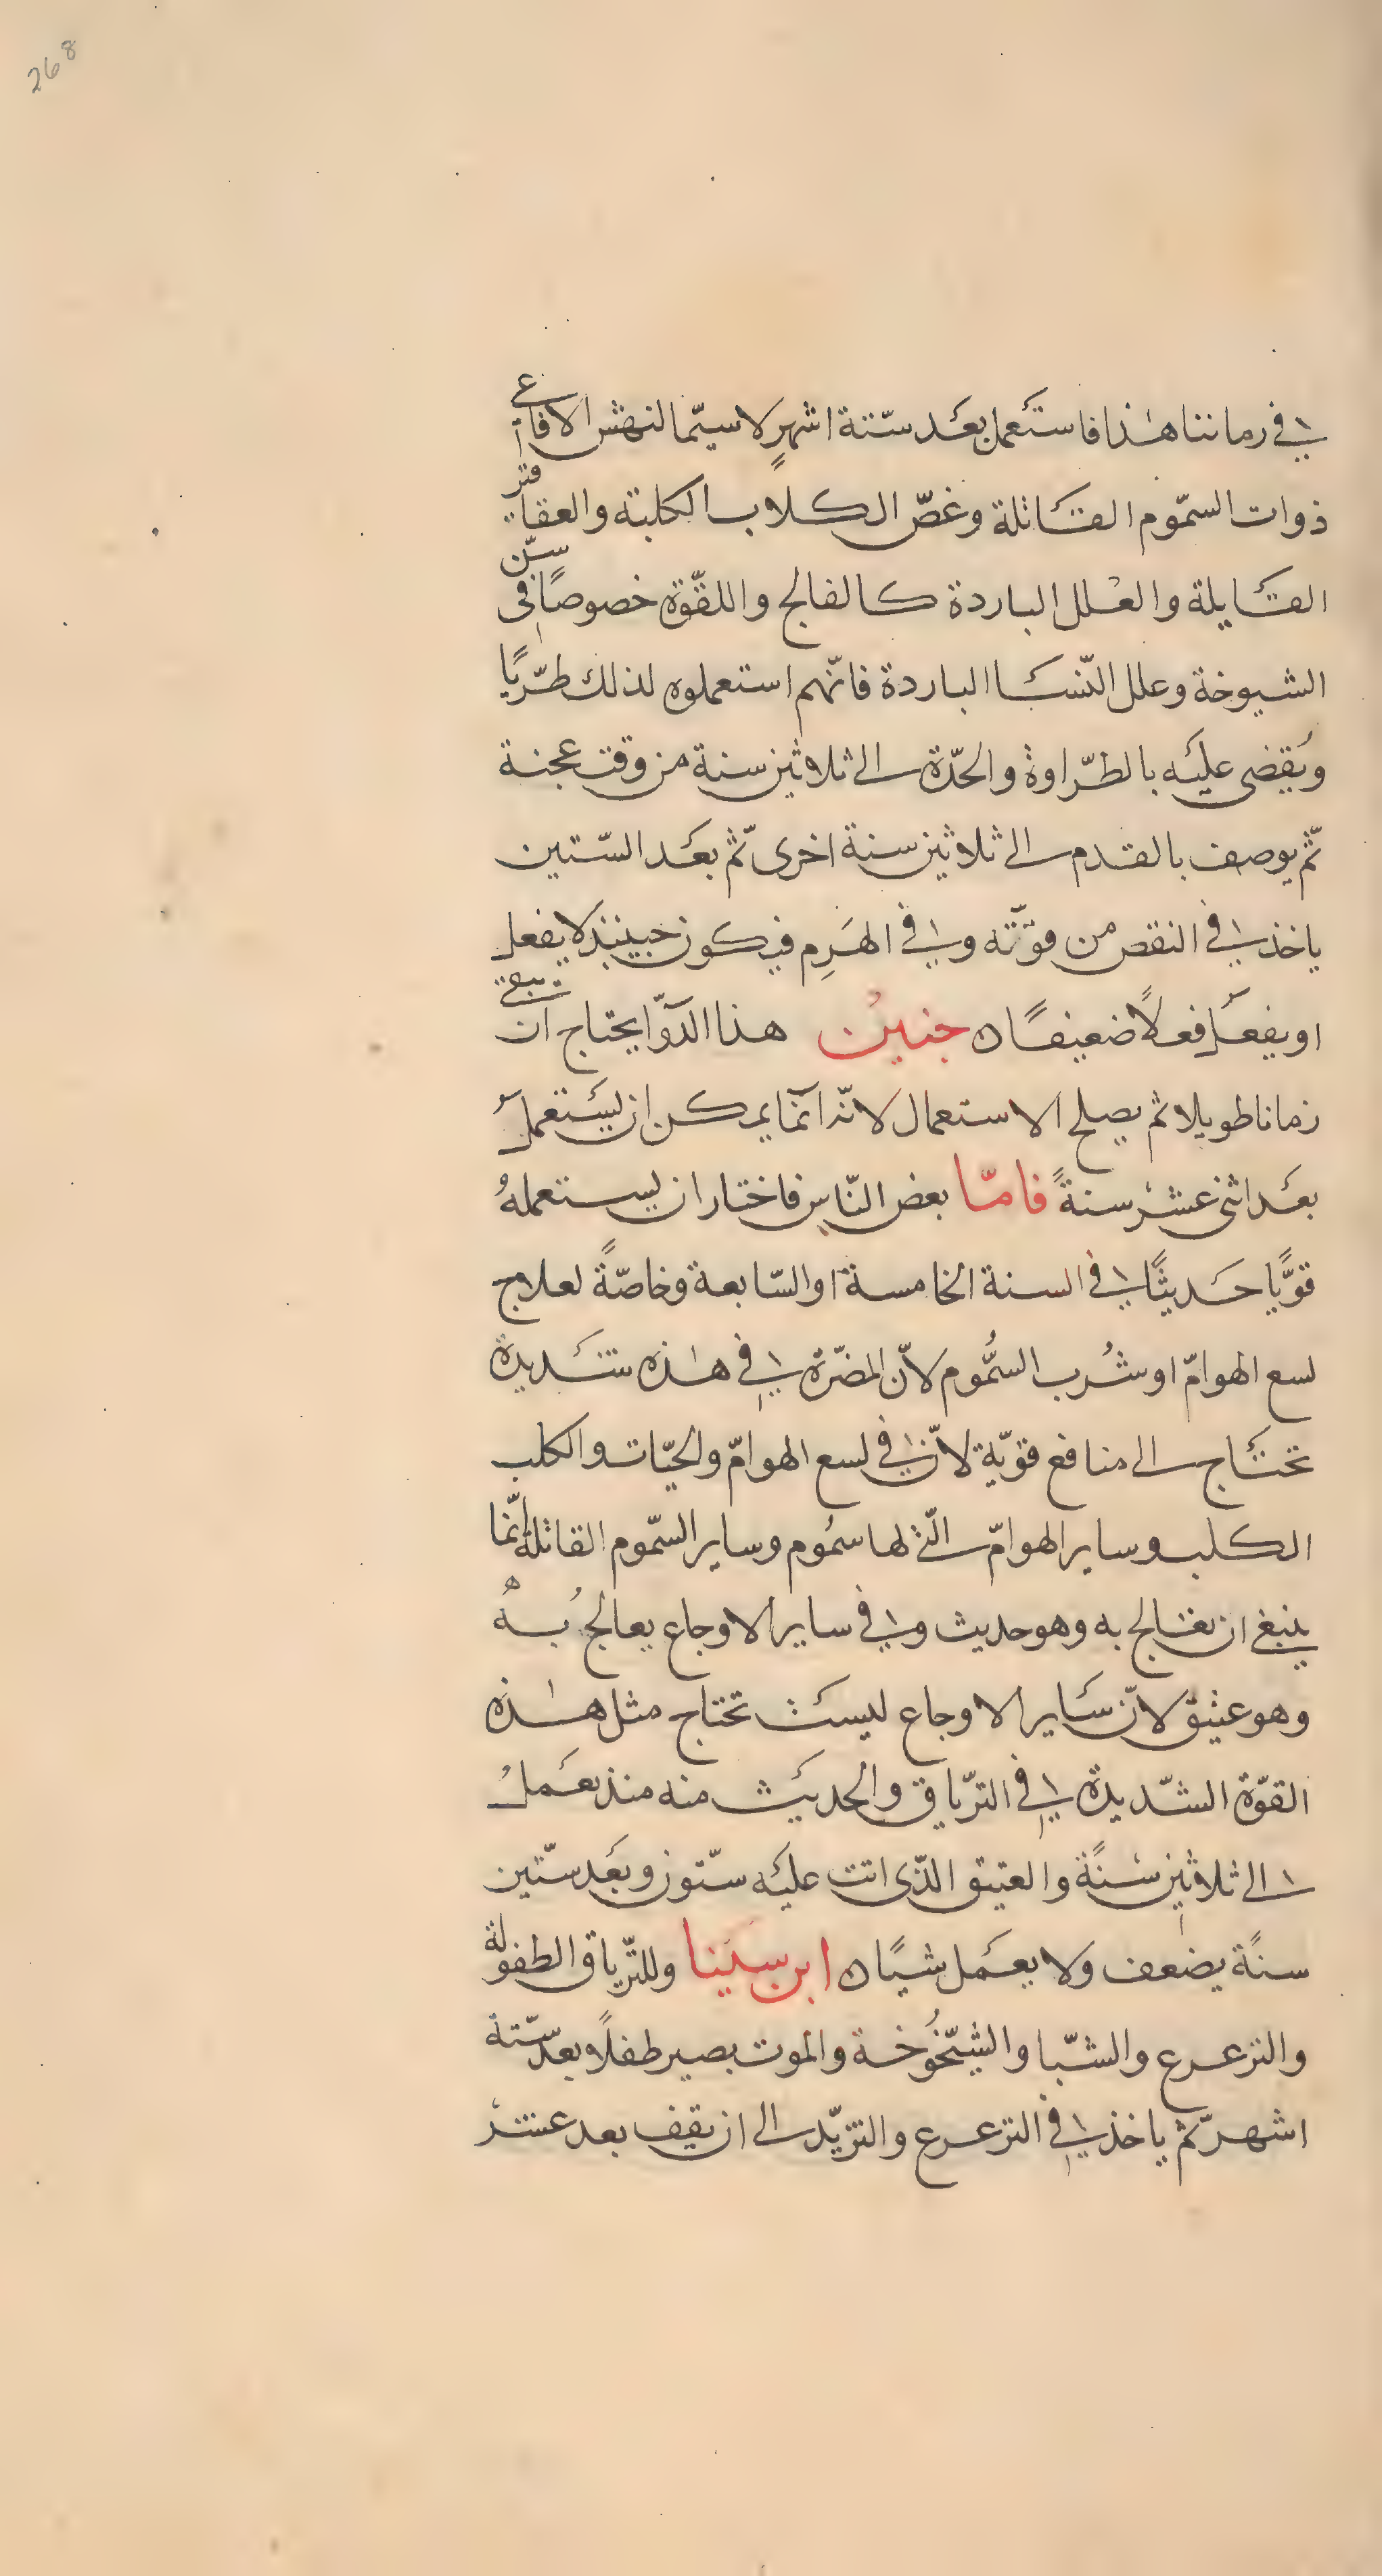 268
في زماننا هٰذا فاستَعمل بعَد ستّة اشهرٍ لا سيّما لنهش الافاعي
ذوات السمّوم القتَاتلة وعضّ الكلاب الكلبة والعقاقير
القتَايلة والعْلل الباردة كالفالج واللقّوة خصوصًا في سنّ
الشيوخة وعلل النّسَا الباردة فانّهم استعملوه لذلك طّريًا
ويُقضى عليَه بالطّراوة والحدّة الى ثلاثين سنة من وقت عجنة
ثّم يوصف بالقدم الى ثلاثين سنة اخرى ثّم بعَد السّتين
ياخذ في النقص من قوّته وفي الهَرِم فيكون حينيذ لا يفعل
او يفعَل فعلاً ضعيفًا ه جنينُ هذا الدّوآ يحتاج ان يبقى
زمانا طويلا ثم يصلح الاستعمال لانّه انّما يمكن ان يسَتعملُ
بعَد اثنى عشرْ سنةً فامّا بعض النّاس فاختار ان يستعملهُ
قوّيًا حَديثًا في السنة الخامسة او السّابعة وخاصّةً لعلاج
لسع الهوامّ او شُرب السمُّوم لانّ المضرّة في هٰذه شَديدة
تحتَاج الى منافع قوّية لانّ في لسع الهوامّ والحيّات والكلب
الكلب وساير الهوامّ الّتى لها سمُوم وساير السّموم القاتلة انّما
ينبغي ان يعَالج به وهو حديث وفي ساير الاوجاع يعالج بُهُ
وهو عتيق لانّ سَاير الاوجاع ليسَت تحتاج مثل هٰذه
القوّة الشّديدة في التّرياق والحديَث منه منذ يعَملُ
الى ثلاثين سَنًة والعتيق الذّى اتت عليَه ستّون وبعَد ستّين
سنًة يضعف ولا يعَمل شيًا ه ابن سَينا وللتّرياق الطفولة
والترعرع والشّبا والشّيخُوخة والموت يصير طفلاً بعد ستّة
اشهر ثّم ياخذ في الترعرع والتزيّد الى ان يقف بعد عشرْ